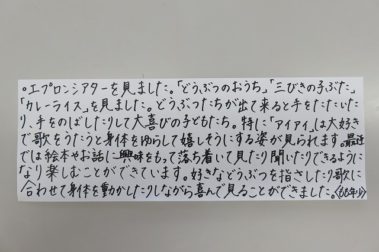 ○エプロンシアターを見ました。「どうぶつのおうち」「三びきの子ぶた」
「カレーライス」を見ました。どうぶつたちが出て来ると手をたたいた
り、手をのばしたりして大喜びの子どもたち。特に「アイアイ」は大好き
で歌をうたうと身体をゆらして嬉しそうにする姿が見られます。最近
では絵本やお話に興味をもって落ち着いて見たり聞いたりできるように
なり楽しむことができています。好きなどうぶつを指さしたり歌に
合わせて身体を動かしたりしながら喜んで見ることができました。